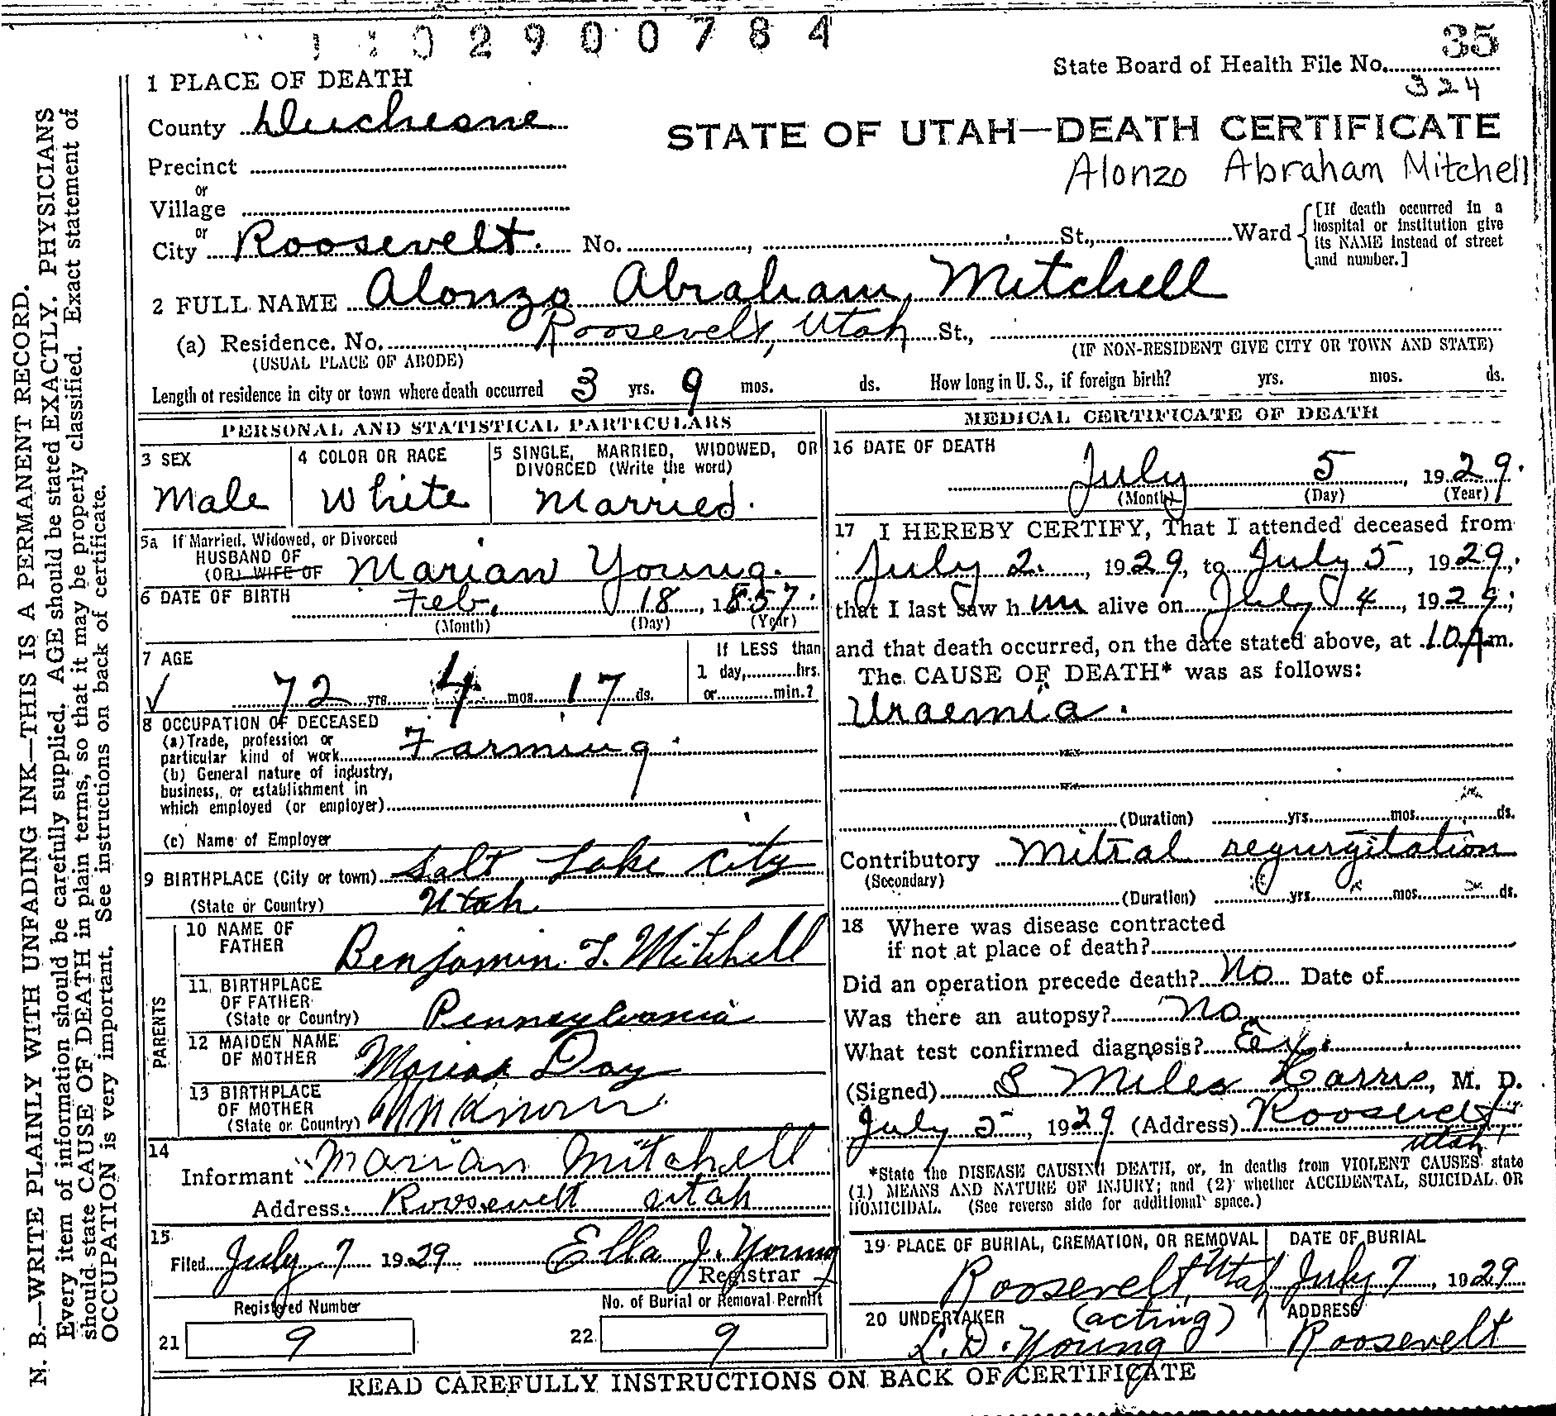 1 1 0 2 9 0 0 7 8 4
35
State Board of Health File No.
324
1 PLACE OF DEATH
County Duchesne
STATE OF UTAH—DEATH CERTIFICATE
Alonzo Abraham Mitchell
Precinct
or
Village
or
City Roosevelt. No. , St., Ward
[If death occurred in a hospital or institution give its NAME instead of street and number.]
2 FULL NAME Alonzo Abraham Mitchell
(a) Residence. No. Roosevelt, Utah St.,
(USUAL PLACE OF ABODE) (IF NON-RESIDENT GIVE CITY OR TOWN AND STATE)
Length of residence in city or town where death occurred 3 yrs. 9 mos. ds. How long in U. S., if foreign birth? yrs. mos. ds.
PERSONAL AND STATISTICAL PARTICULARS
3 SEX
Male
4 COLOR OR RACE
White
5 SINGLE, MARRIED, WIDOWED, OR
DIVORCED (Write the word)
Married.
5a If Married, Widowed, or Divorced
HUSBAND OF
(OR) WIFE OF Marian Young.
6 DATE OF BIRTH Feb. 18, 1857.
(Month) (Day) (Year)
7 AGE
72 yrs. 4 mos. 17 ds.
If LESS than
1 day, hrs.
or min.?
8 OCCUPATION OF DECEASED
(a) Trade, profession or
particular kind of work Farming.
(b) General nature of industry,
business, or establishment in
which employed (or employer)
(c) Name of Employer
9 BIRTHPLACE (City or town) Salt Lake City
(State or Country) Utah
PARENTS
10 NAME OF
FATHER Benjamin T. Mitchell
11 BIRTHPLACE
OF FATHER
(State or Country) Pennsylvania
12 MAIDEN NAME
OF MOTHER Day
13 BIRTHPLACE
OF MOTHER
(State or Country) Unknown
14
Informant Marian Mitchell
Address: Roosevelt Utah
15
Filed July 7 1929 Ella J. Young
Registrar
Registered Number
21 9
No. of Burial or Removal Permit
22 9
MEDICAL CERTIFICATE OF DEATH
16 DATE OF DEATH
July 5, 1929.
(Month) (Day) (Year)
17 I HEREBY CERTIFY, That I attended deceased from
July 2., 1929, to July 5, 1929,
that I last saw h im alive on July 4, 1929;
and that death occurred, on the date stated above, at 10 A m.
The CAUSE OF DEATH* was as follows:
Uraemia.
(Duration) yrs. mos. ds.
Contributory Mitral regurgitation
(Secondary)
(Duration) yrs. mos. ds.
18 Where was disease contracted
if not at place of death?
Did an operation precede death? No Date of
Was there an autopsy? No
What test confirmed diagnosis? Ex.
(Signed) S Miles Harris, M. D.
July 5, 1929 (Address) Roosevelt
Utah
*State the DISEASE CAUSING DEATH, or, in deaths from VIOLENT CAUSES state
(1) MEANS AND NATURE OF INJURY; and (2) whether ACCIDENTAL, SUICIDAL OR
HOMICIDAL. (See reverse side for additional space.)
19 PLACE OF BURIAL, CREMATION, OR REMOVAL
Roosevelt, Utah
DATE OF BURIAL
July 7, 1929
20 UNDERTAKER (acting)
L. D. Young
ADDRESS
Roosevelt
READ CAREFULLY INSTRUCTIONS ON BACK OF CERTIFICATE
N. B.—WRITE PLAINLY WITH UNFADING INK—THIS IS A PERMANENT RECORD.
Every item of information should be carefully supplied. AGE should be stated EXACTLY. PHYSICIANS
should state CAUSE OF DEATH in plain terms, so that it may be properly classified. Exact statement of
OCCUPATION is very important. See instructions on back of certificate.